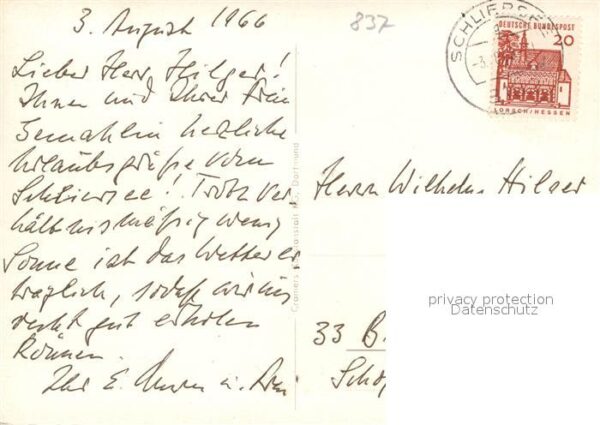 3. August 1966
837
SCHLIERSEE
DEUTSCHE BUNDESPOST
20
LORSCH/HESSEN
Lieber Herr Hilger!
Ihnen und Ihrer Frau
Gemahlin herzliche
Urlaubsgrüße vom
Schliersee! Trotz ver
hältnismäßig wenig
Sonne ist das Wetter er
träglich, sodaß wir uns
recht gut erholen
können.
Ihr E.
Herrn Wilhelm Hilger
33 B
Schö
Cramers Kunstanstalt KG, Dortmund
privacy protection
Datenschutz